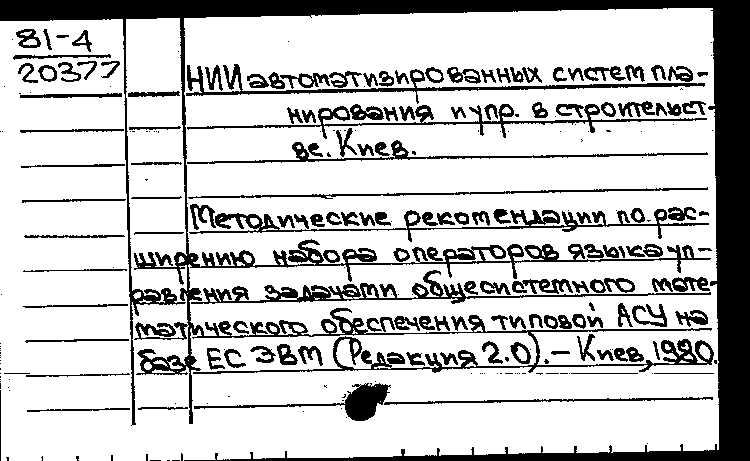 81-4
20377
НИИ автоматизированных систем пла-
нирования и упр. в строительст-
ве. Киев.
Методические рекомендации по рас-
ширению набора операторов языка уп-
равления задачами общесистемного мате-
матического обеспечения типовой АСУ на
базе ЕС ЭВМ (Редакция 2.0). – Киев, 1980.